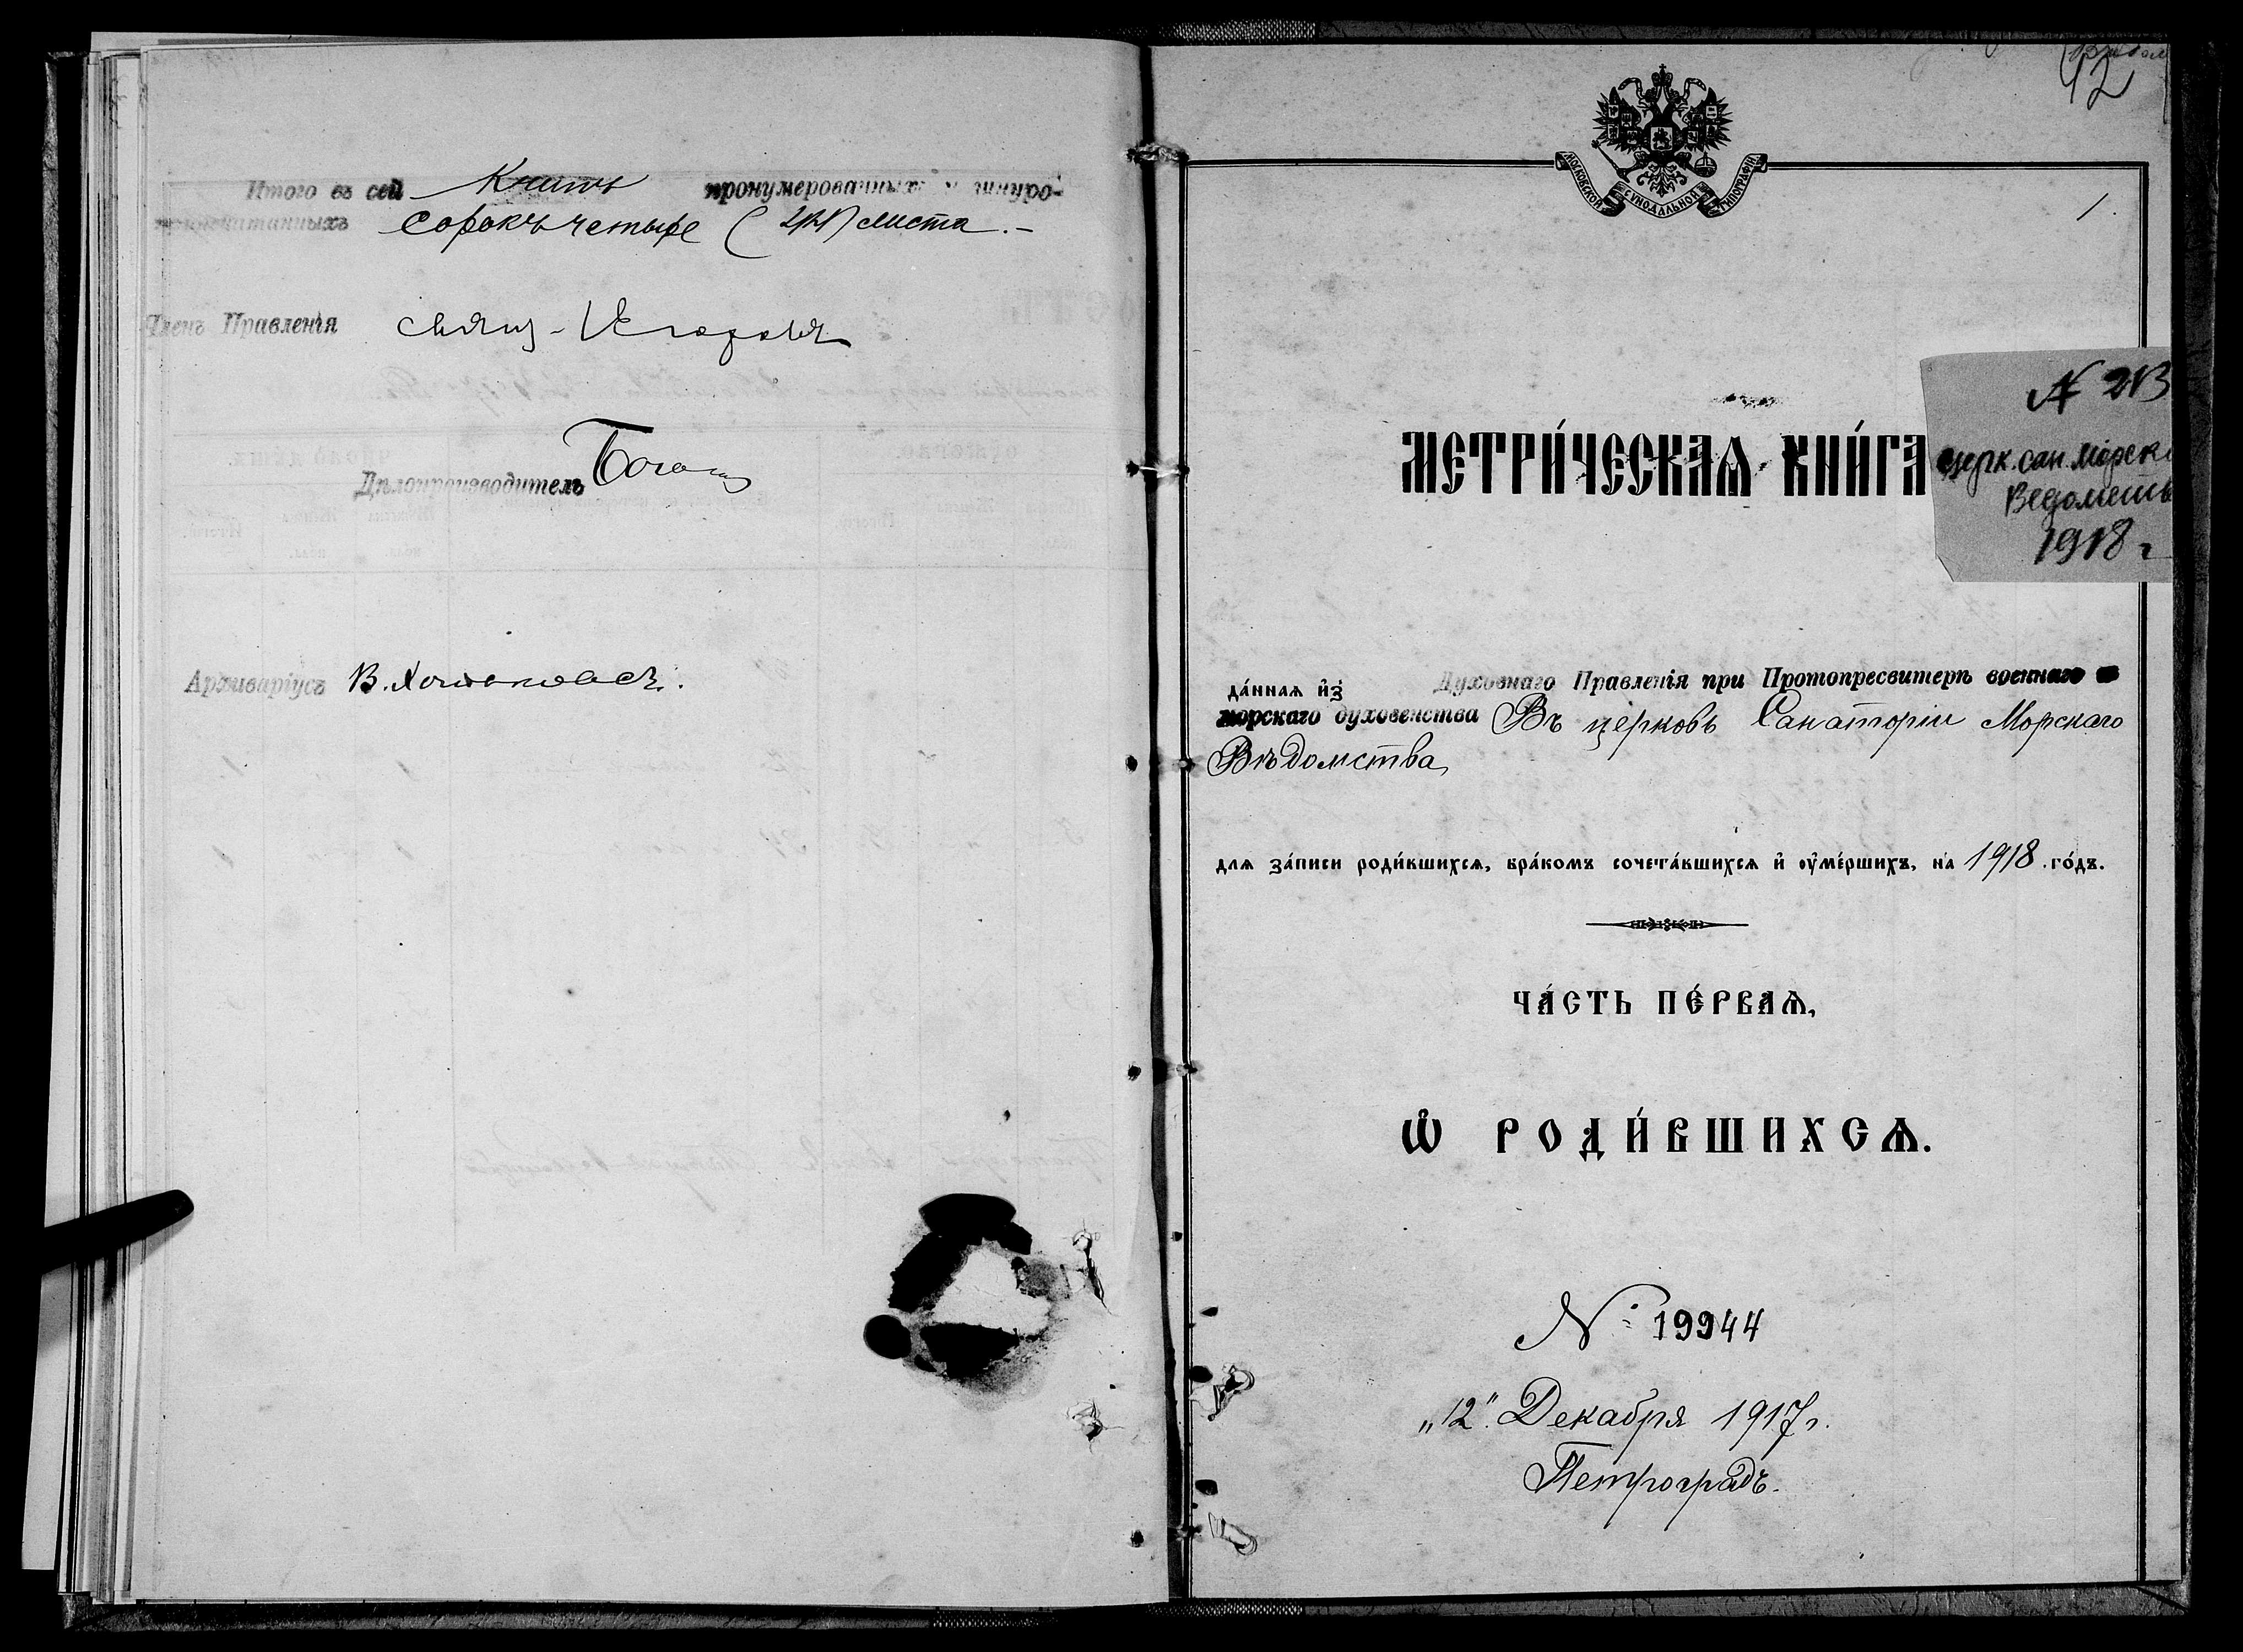 Итого въ сей Книгѣ пронумерованныхъ и шнуро-
припечатанныхъ сорокъ четыре (44) листа.-
Членъ Правленія свящ- Егоровъ
Дѣлопроизводитель
Архиваріусъ В.
12
МОСКОВСКОЙ СУНОДАЛЬНОЙ ТИПОГРАФІИ
1.
МЕТРИ́ЧЕСКАѦ КНИ́ГА
№ 213
церк. сан. Морск
Ведомств
1918 г
да́ннаѧ и҆з̾ Духовнаго Правленія при Протопресвитерѣ военнаго и
морскаго духовенства Въ церковь Санаторіи Морскаго
Вѣдомства,
длѧ за́писи роди́вшихсѧ, бра́комъ сочета́вшихсѧ и҆ ᲂу҆ме́ршихъ, на 1918 го́дъ.
ЧА́СТЬ ПЕ́РВАѦ,
Ѡ҆ РОДИ́ВШИХСѦ.
№ 19944
„12" Декабря 1917 г.
Петроградъ.